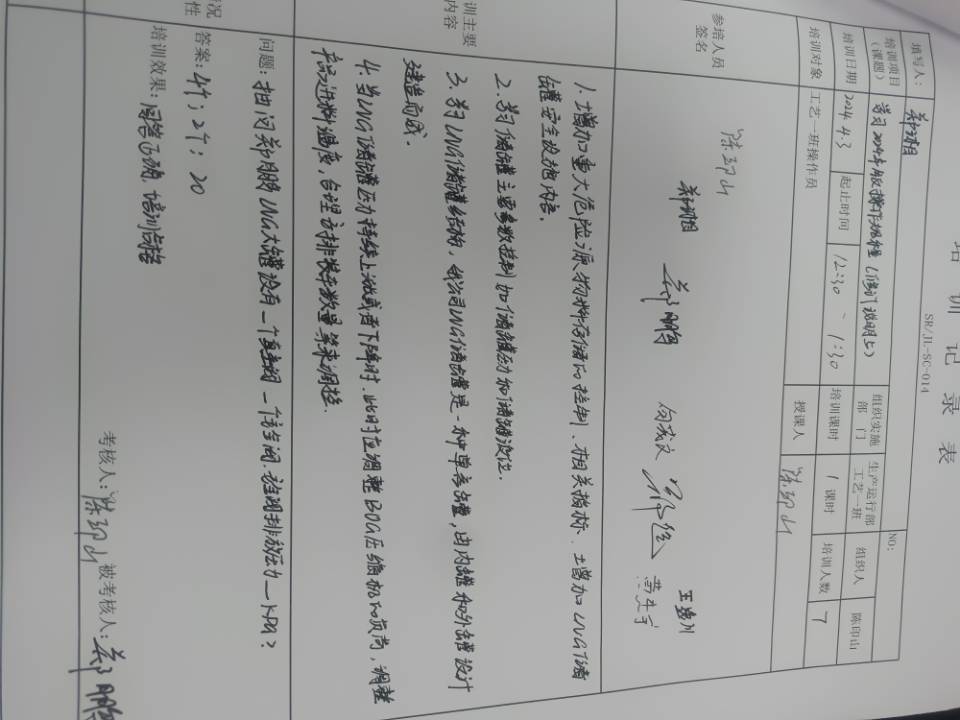 培训记录表
SR/JL-SC-014
NO:
填写人：
组织实施部门 生产运行部工艺一班 组织人 陈印山
培训项目（课题） 学习2024年版操作规程（修订说明5）
培训日期 2024.4.3 起止时间 12:30 - 1:30 培训课时 1课时 培训人数 7
培训对象 工艺一班操作员 授课人 陈印山
参培人员签名
陈印山
向成文
训主要
内容
1.增加重大危险源物料存储的控制、相关指标、增加LNG储
罐安全设施内容。
2.学习储罐主要参数控制如储罐压力和储罐液位.
3.学习LNG储罐结构，我公司LNG储罐是一种单容罐，由内罐和外罐设计
建造而成.
4.当LNG储罐压力持续上涨或者下降时.此时应调整BOG压缩机的负荷，调整
产品进料温度，合理安排装车数量等来调控.
况
性
问题：抽问郑鹏LNG大罐设有__个真空阀__个安全阀.该阀排放压力__kPa？
答案：4个；2个；20
培训效果：回答正确，培训合格
考核人：陈印山 被考核人：